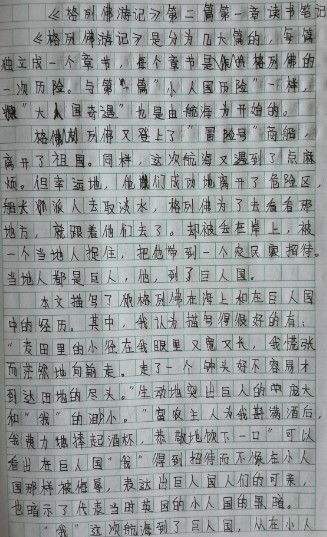 《格列佛游记》第二篇第一章读书笔记
《格列佛游记》是分为几大篇的，每篇
独立成一个章节，每个章节是格列佛的
一次历险。与第一篇“小人国历险”一样，
“大人国奇遇”也是由航海为开始的。
格列佛又登上了“冒险号”商船，
离开了祖国。同样，这次航海又遇到了点麻
烦。但幸运地，他们成功地离开了危险区，
船长派人去取淡水，格列佛为了去看看那
地方，就跟着他们去了。却被丢在岸上，被
一个当地人捉住，把他带到一个农民家招待。
当地人都是巨人，他，到了巨人国。
本文描写了格列佛在海上和在巨人国
中的经历。其中，我认为描写得很好的有：
“麦田里的小径在我眼里又宽又长，我慌张
而茫然地向前走。走了一个钟头好不容易才
到达田地的尽头。”生动地突出巨人的庞大
和“我”的渺小。“当农主人为我斟满酒后，
我费力地捧起酒杯，恭敬地饮下一口”可以
看出在巨人国“我”得到招待而不像在小人
国那样被侮辱，表达出巨人国人们的可亲，
也暗示了代表当时英国的小人国的黑暗。
“我”这次航海到了巨人国，从在小人